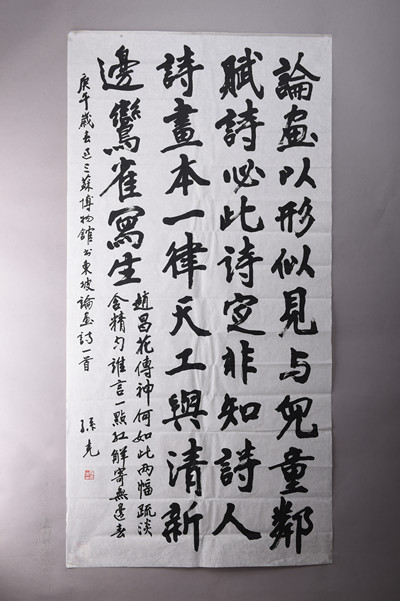 論畫以形似見与兒童鄰
賦詩必此詩定非知詩人
詩畫本一律天工與清新
邊鸞雀寫生
趙昌花傳神何如此兩幅疏淡
含精勻誰言一點红解寄無邊春
庚午歲春过三蘇博物館书東坡論畫詩一首
孫克